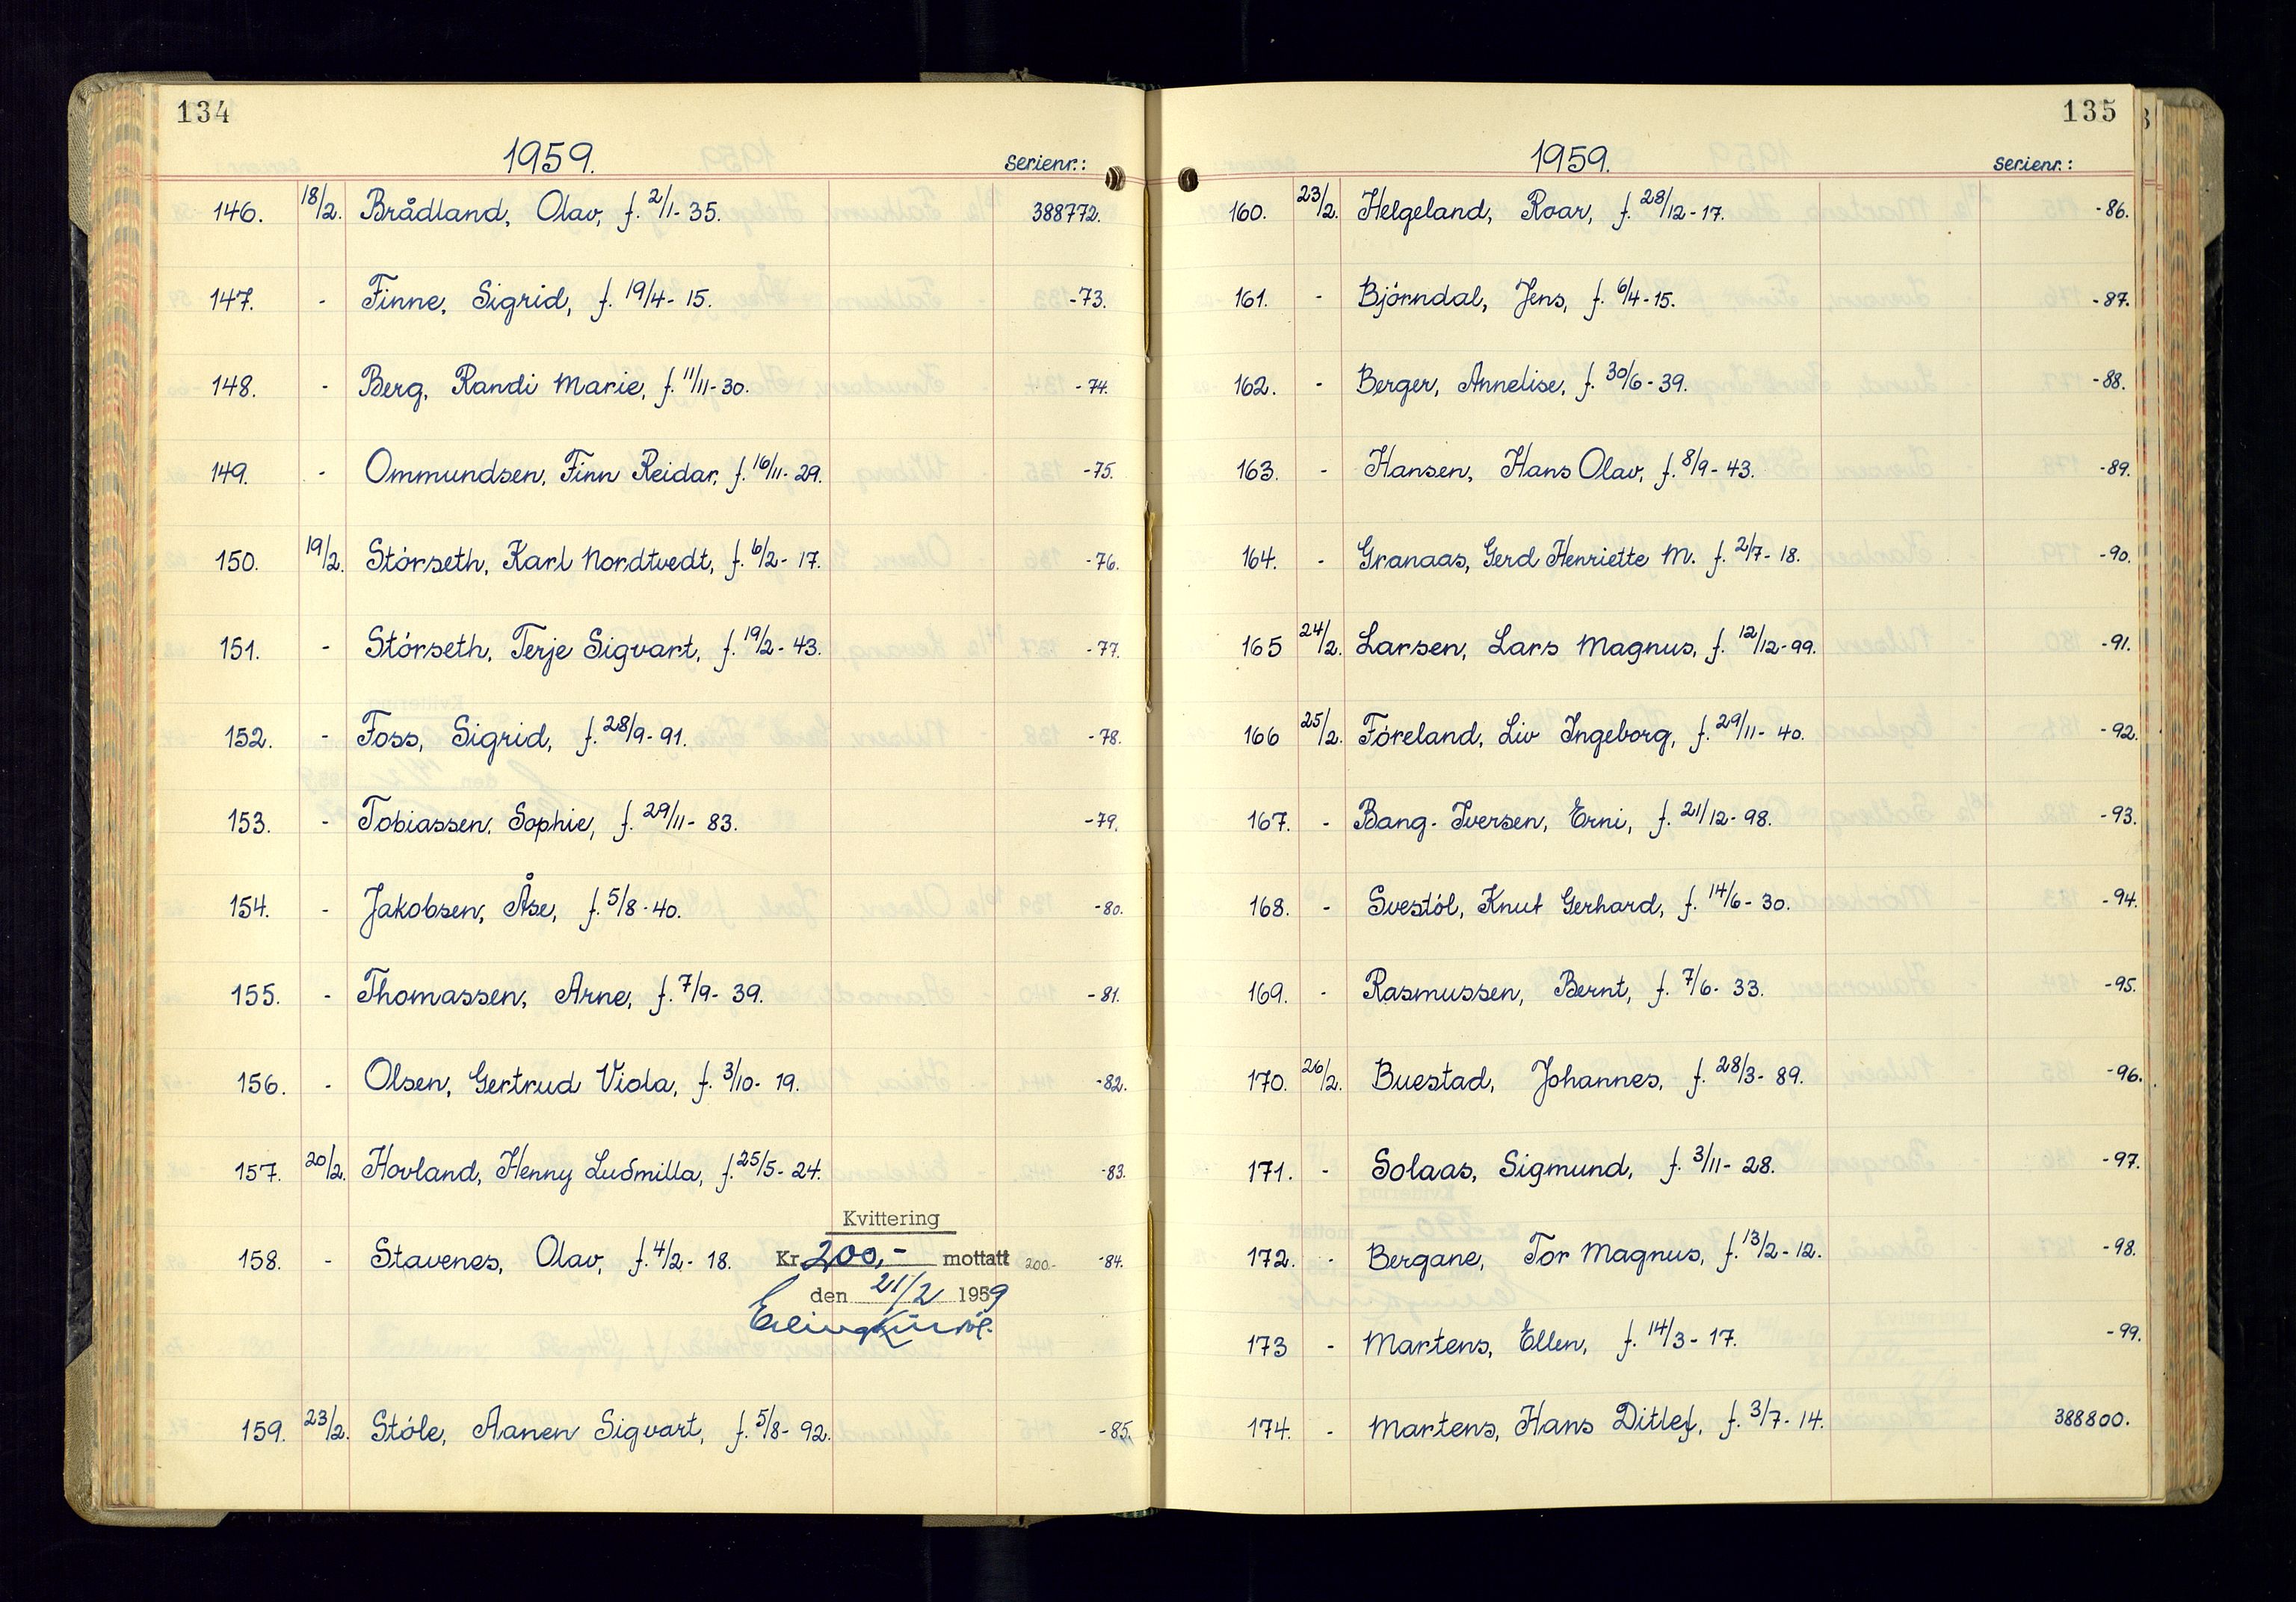 134
1959.
serienr.:
146. 18/2. Brådland, Olav, f. 2/1- 35. 388772.
147. - Finne, Sigrid, f. 19/4- 15. -73.
148. - Berg, Randi Marie, f. 11/11- 30. -74.
149. - Ommundsen, Finn Reidar, f. 16/11- 29. -75.
150. 19/2. Störseth, Karl Nordtvedt, f. 6/2- 17. -76.
151. - Störseth, Terje Sigvart, f. 19/2- 43. -77.
152. - Foss, Sigrid, f. 28/9- 91. -78.
153. - Tobiassen, Sophie, f. 29/11- 83. -79.
154. - Jakobsen, Åse, f. 5/8- 40. -80.
155. - Thomassen, Arne, f. 7/9- 39. -81.
156. - Olsen, Gertrud Viola, f. 3/10- 19. -82.
157. 20/2. Hovland, Henny Ludmilla, f. 25/5- 24. -83.
Kvittering
158. - Stavenes, Olav, f. 4/2- 18. Kr. 200,- mottatt 200.- -84.
den 21/2 1959
159. 23/2. Stöle, Aanen Sigvart, f. 5/8- 92. -85.
135
1959.
serienr.:
160. 23/2. Helgeland, Roar, f. 28/12- 17. -86.
161. - Björndal, Jens, f. 6/4- 15. -87.
162. - Berger, Annelise, f. 30/6- 39. -88.
163. - Hansen, Hans Olav, f. 8/9- 43. -89.
164. - Granaas, Gerd Henriette M. f. 2/7- 18. -90.
165 24/2. Larsen, Lars Magnus, f. 12/12- 99. -91.
166 25/2. Föreland, Liv Ingeborg, f. 29/11- 40. -92.
167. - Bang- Iversen, Erni, f. 21/12- 98. -93.
168. - Svestöl, Knut Gerhard, f. 14/6- 30. -94.
169. - Rasmussen, Bernt, f. 7/6- 33. -95.
170. 26/2. Buestad, Johannes, f. 28/3- 89. -96.
171. - Solaas, Sigmund, f. 3/11- 28. -97.
172. - Bergane, Tor Magnus, f. 13/2- 12. -98.
173 - Martens, Ellen, f. 14/3- 17. -99.
174. - Martens, Hans Ditlef, f. 3/7- 14. 388800.